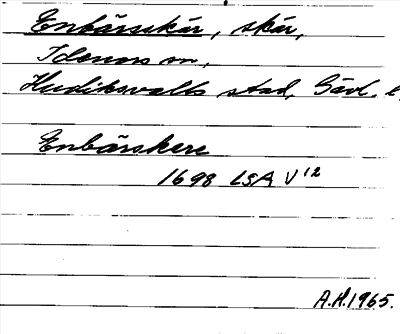 Enbärsskär, skär,
Idenors sn,
Hudiksvalls stad, Gävl. l.
Enbärskere
1698 LSA V 12
A.H. 1965.